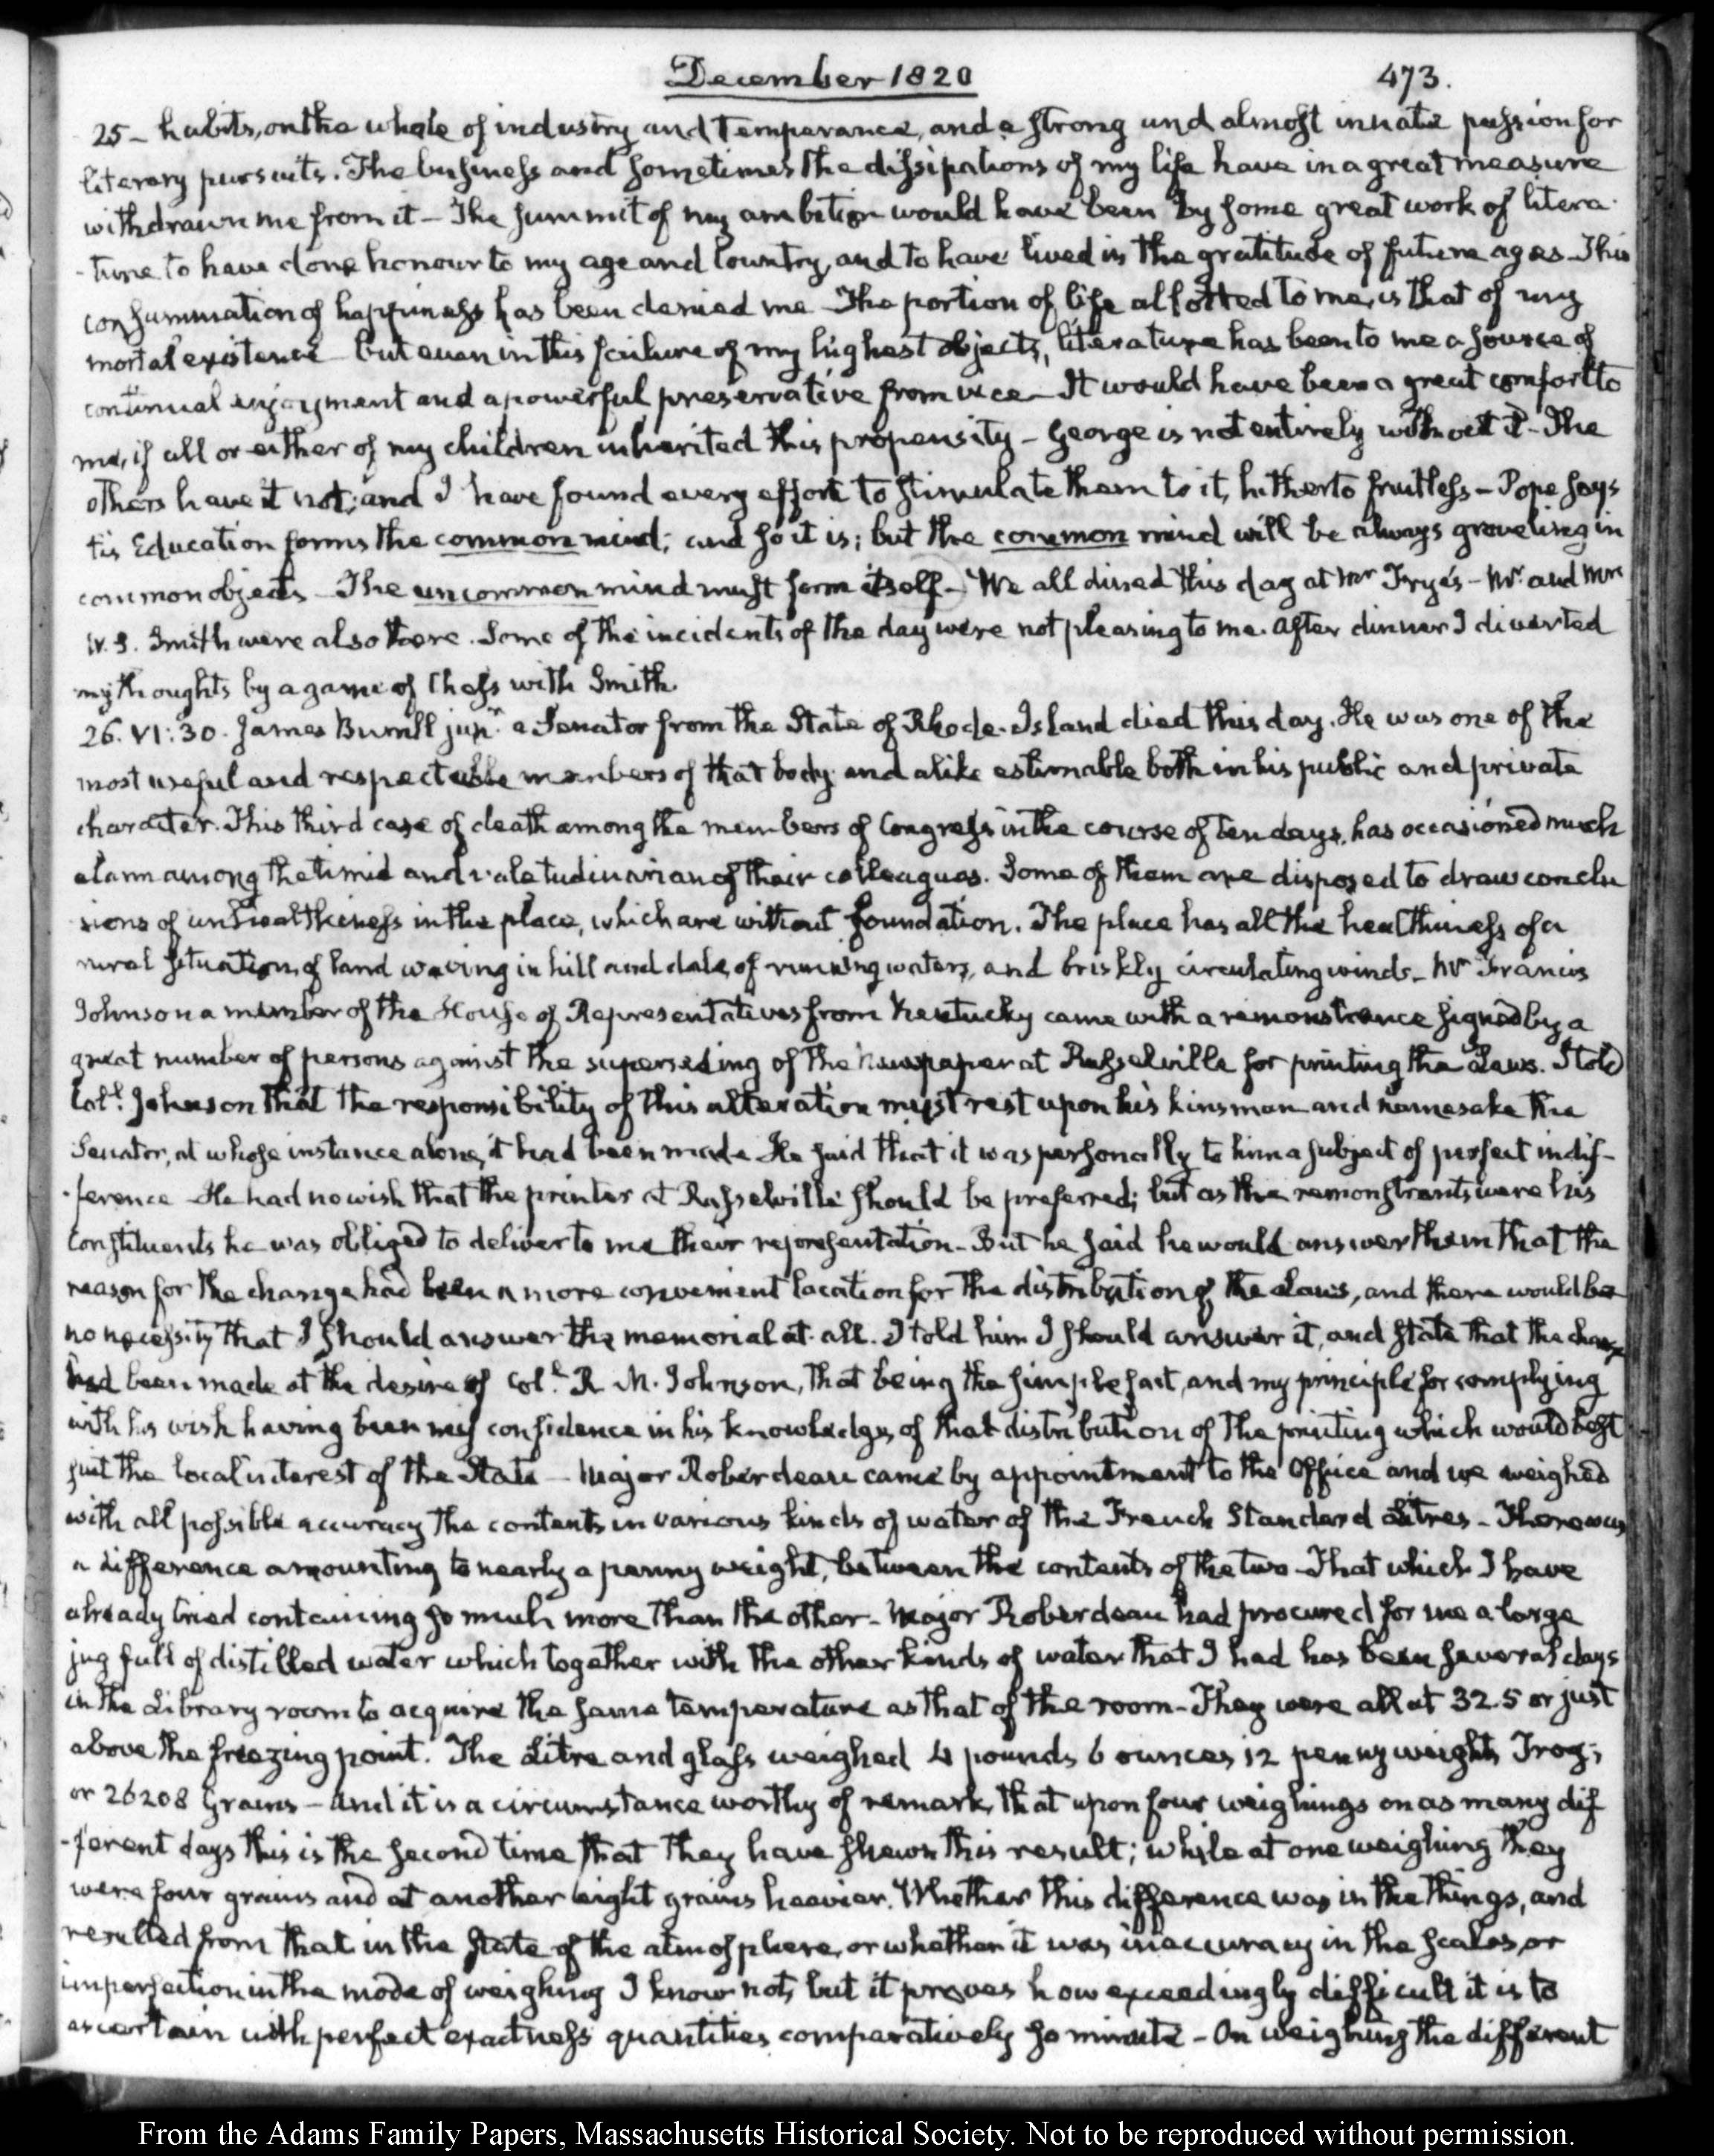 December 1820
473.
25 – habits, on the whole of industry and Temperance, and a strong and almost innate passion for
literary pursuits. The business and sometimes the dissipations of my life have in a great measure
withdrawn me from it – The summit of my ambition would have been by some great work of litera-
-ture to have done honour to my age and Country, and to have lived in the gratitude of future ages – This
consummation of happiness has been denied me – The portion of life allotted to me, is that of my
mortal existence – but even in this failure of my highest objects, literature has been to me a source of
continual enjoyment and a powerful preservative from vice – It would have been a great comfort to
me, if all or either of my children inherited this propensity – George is not entirely without it – The
others have it not; and I have found every effort to stimulate them to it, hitherto fruitless – Pope says
tis Education forms the common mind; and so it is; but the common mind will be always groveling in
common objects – The uncommon mind must form itself – We all dined this day at Mr Frye's – Mr. and Mrs
W. S. Smith were also there. Some of the incidents of the day were not pleasing to me. After dinner I diverted
my thoughts by a game of Chess with Smith.
26. VI:30. James Burrill junr. a Senator from the State of Rhode-Island died this day. He was one of the
most useful and respectable members of that body and alike estimable both in his public and private
character. This third case of death among the members of Congress in the course of ten days, has occasioned much
alarm among the timid and valetudinarian of their colleagues. Some of them are disposed to draw conclu
sions of unhealthiness in the place, which are without foundation. The place has all the healthiness of a
rural situation, of land waving in hill and dale, of running waters, and briskly circulating winds – Mr Francis
Johnson a member of the House of Representatives from Kentucky came with a remonstrance signed by a
great number of persons against the superseding of the newspaper at Russelville for printing the Laws. I told
Coll. Johnson that the responsibility of this alteration must rest upon his kinsman and namesake the
Senator, at whose instance alone, it had been made – He said that it was personally to him a subject of perfect indif-
-ference – He had no wish that the printer at Russelville should be preferred; but as the remonstrants were his
Constituents he was obliged to deliver to me their representation – But he said he would answer them that the
reason for the change had been a more convenient location for the distribution of the Laws, and there would be
no necessity that I should answer the memorial at all. I told him I should answer it, and state that the change
had been made at the desire of Coll. R. M. Johnson, that being the simple fact, and my principle for complying
with his wish having been my confidence in his knowledge, of that distribution of the printing which would best
suit the local interest of the State – Major Roberdeau came by appointment to the Office and we weighed
with all possible accuracy the contents in various kinds of water of the French Standard Litres – There was
a difference amounting to nearly a penny weight, between the contents of the two – That which I have
already tried containing so much more than the other – Major Roberdeau had procured for me a large
jug full of distilled water which together with the other kinds of water that I had has been several days
in the Library room to acquire the same temperature as that of the room – They were all at 32.5 or just
above the freezing point. The Litre and glass weighed 4 pounds 6 ounces 12 penny weights Troy;
or 26208 Grains – And it is a circumstance worthy of remark, that upon four weighings on as many dif
-ferent days this is the second time that they have shewn this result; while at one weighing they
were four grains and at another eight grains heavier. Whether this difference was in the things, and
resulted from that in the state of the atmosphere, or whether it was inaccuracy in the scales, or
imperfection in the mode of weighing I know not, but it proves how exceedingly difficult it is to
ascertain with perfect exactness quantities comparatively so minute – On weighing the different
From the Adams Family Papers, Massachusetts Historical Society. Not to be reproduced without permission.